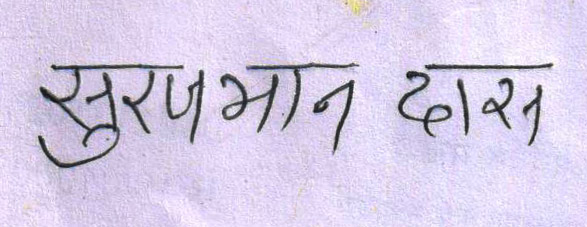 सुरजभान दास